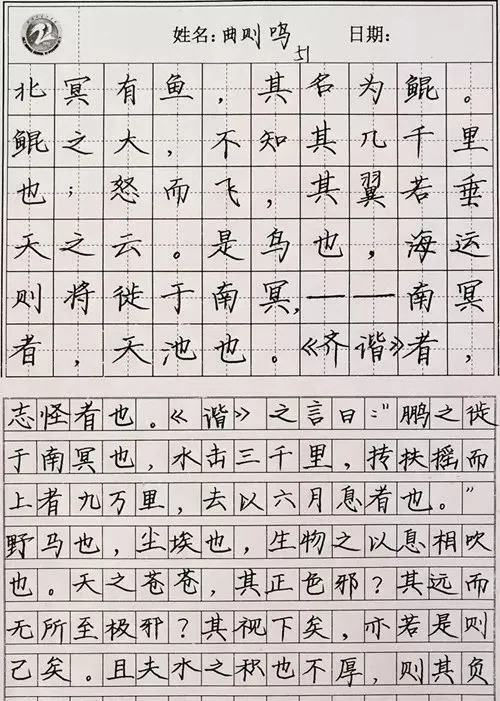 姓名：曲则鸣 51 日期：
北冥有鱼，其名为鲲。
鲲之大，不知其几千里
也；怒而飞，其翼若垂
天之云。是鸟也，海运
则将徙于南冥，——南冥
者，天池也。《齐谐》者，
志怪者也。《谐》之言曰：“鹏之徙
于南冥也，水击三千里，抟扶摇而
上者九万里，去以六月息者也。”
野马也，尘埃也，生物之以息相吹
也。天之苍苍，其正色邪？其远而
无所至极邪？其视下矣，亦若是则
已矣。且夫水之积也不厚，则其负